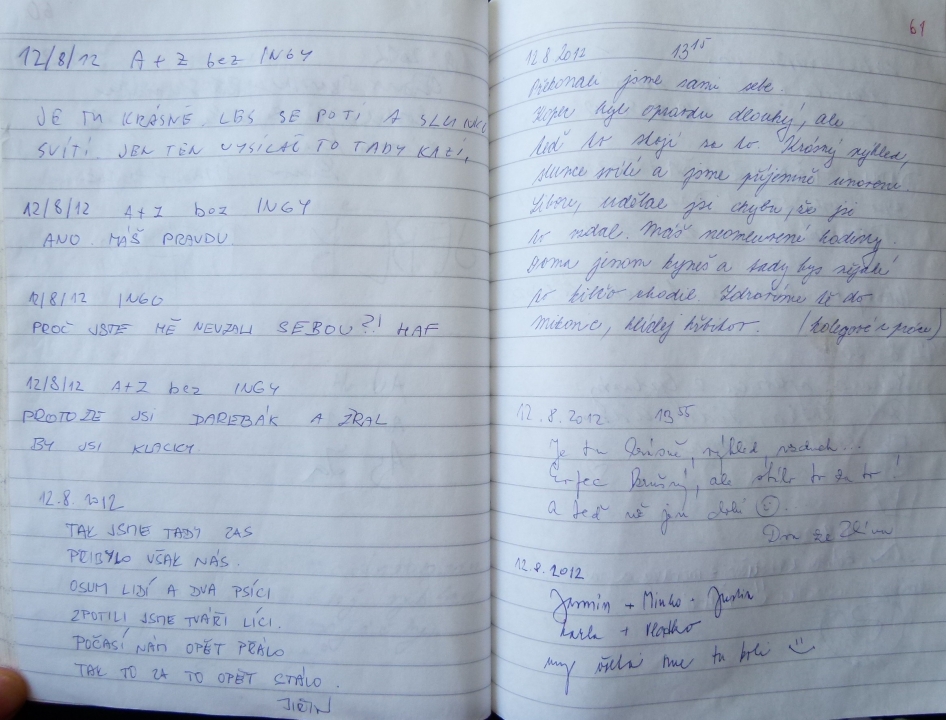 12/8/12 A+Z bez INGY
JE TU KRÁSNĚ. LES SE POTÍ A SLUNCE
SVÍTÍ. JEN TEN VYSÍLAČ TO TADY KAZÍ.
12/8/12 A+Z bez INGY
ANO. MÁŠ PRAVDU.
12/8/12 INGO
PROČ JSTE MĚ NEVZALI SEBOU?! HAF
12/8/12 A+Z bez INGY
PROTOŽE JSI DAREBÁK A ŽRAL
BY JSI KLACKY.
12.8.2012
TAK JSME TADY ZAS
PŘIBYLO VŠAK NÁS.
OSUM LIDÍ A DVA PSÍCI
ZPOTILI JSME TVÁŘI LÍCI.
POČASÍ NÁM OPĚT PŘÁLO
TAK TO ZA TO OPĚT STÁLO.
JIŘIN
61
12.8.2012 13¹⁵
Překonali jsme sami sebe.
Kopec byl opravdu dlouhý, ale
teď to stojí za to. Krásný výhled,
slunce svítí a jsme příjemně unaveni.
Libore, udělal jsi chybu, že jsi
to vzdal. Máš neomluvené hodiny.
Doma jenom kyneš a tady bys nějaké
to kilčo shodil. Zdravíme tě do
Milonic, hlídej hřbitov. (kolegové z práce)
12.8.2012 13⁵⁵
Je tu krásně, výhled, vzduch...
ale stálo to za to!
a teď už jen dolů ☺.
12.8.2012
Jasmín + Minko + Justin
Karla + Vlatko
my všichni sme tu boli ☺